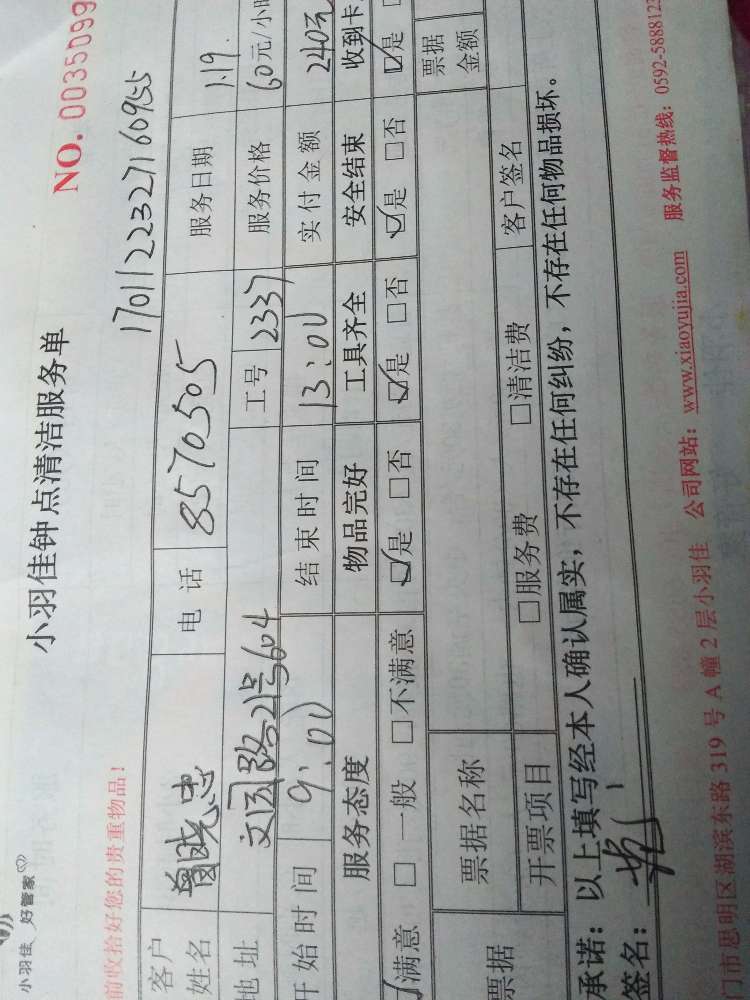 小羽佳 好管家
小羽佳钟点清洁服务单
NO. 0035099
前收拾好您的贵重物品!
1701122327160955
客户姓名 曾晓忠 电话 8570505 服务日期 1.19
地址 文园路21号604 工号 2337 服务价格 60元/小时
开始时间 9:00 结束时间 13:00 实付金额 240元
服务态度 物品完好 工具齐全 安全结束 收到卡
☑满意 □一般 □不满意 ☑是 □否 ☑是 □否 ☑是 □否 ☑是
票据 票据名称 票据金额
开票项目 □服务费 □清洁费 客户签名
承诺:以上填写经本人确认属实,不存在任何纠纷,不存在任何物品损坏。
签名:
门市思明区湖滨东路 319 号 A 幢 2 层小羽佳 公司网站:www.xiaoyujia.com 服务监督热线:0592-5888123